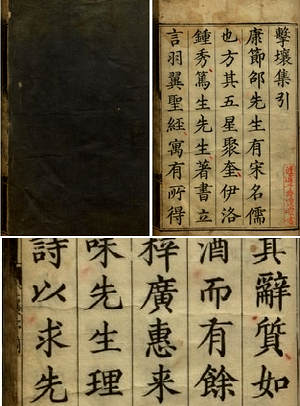 擊壤集引
康節邵先生有宋名儒
也方其五星聚奎伊洛
鍾秀篤生先生著書立
言羽翼聖經寓有所得
其辭質如
酒而有餘
梓廣惠来
味先生理
詩以求先